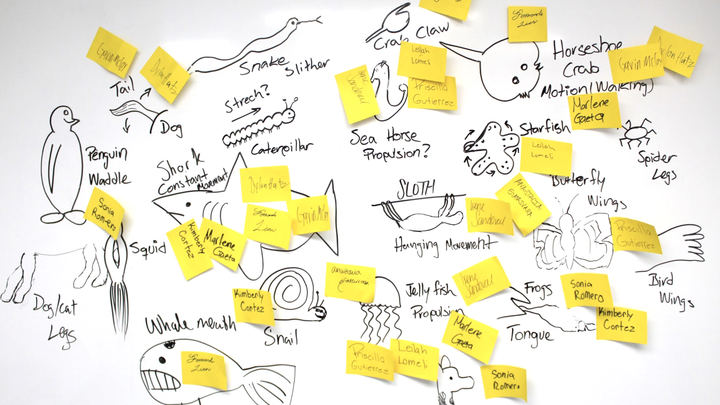 Crab Claw
Snake
Slither
Horseshoe
Crab
Motion (Walking)
Gavin McCoy
Dylan Hutz
Leilah
Lomeli
Priscilla
Gutierrez
Gavin McCoy
Dylan Hutz
Marlene
Gaeta
Tail
Dog
Strech?
Caterpillar
Sea Horse
Propulsion?
Starfish
Leilah
Lomeli
Spider
Legs
Penguin
Waddle
Shark
Constant Movement
Dylan Hutz
SLOTH
Butterfly
Wings
Sonia
Romero
Squid
Kimberly
Cortez
Marlene
Gaeta
Hanging Movement
Priscilla
Gutierrez
Bird
Wings
Dog/cat
Legs
Kimberly
Cortez
Snail
Jelly fish
Propulsion
Frogs
Tongue
Sonia
Romero
Kimberly
Cortez
Whale mouth
Marlene
Gaeta
Priscilla
Gutierrez
Leilah
Lomeli
Sonia
Romero